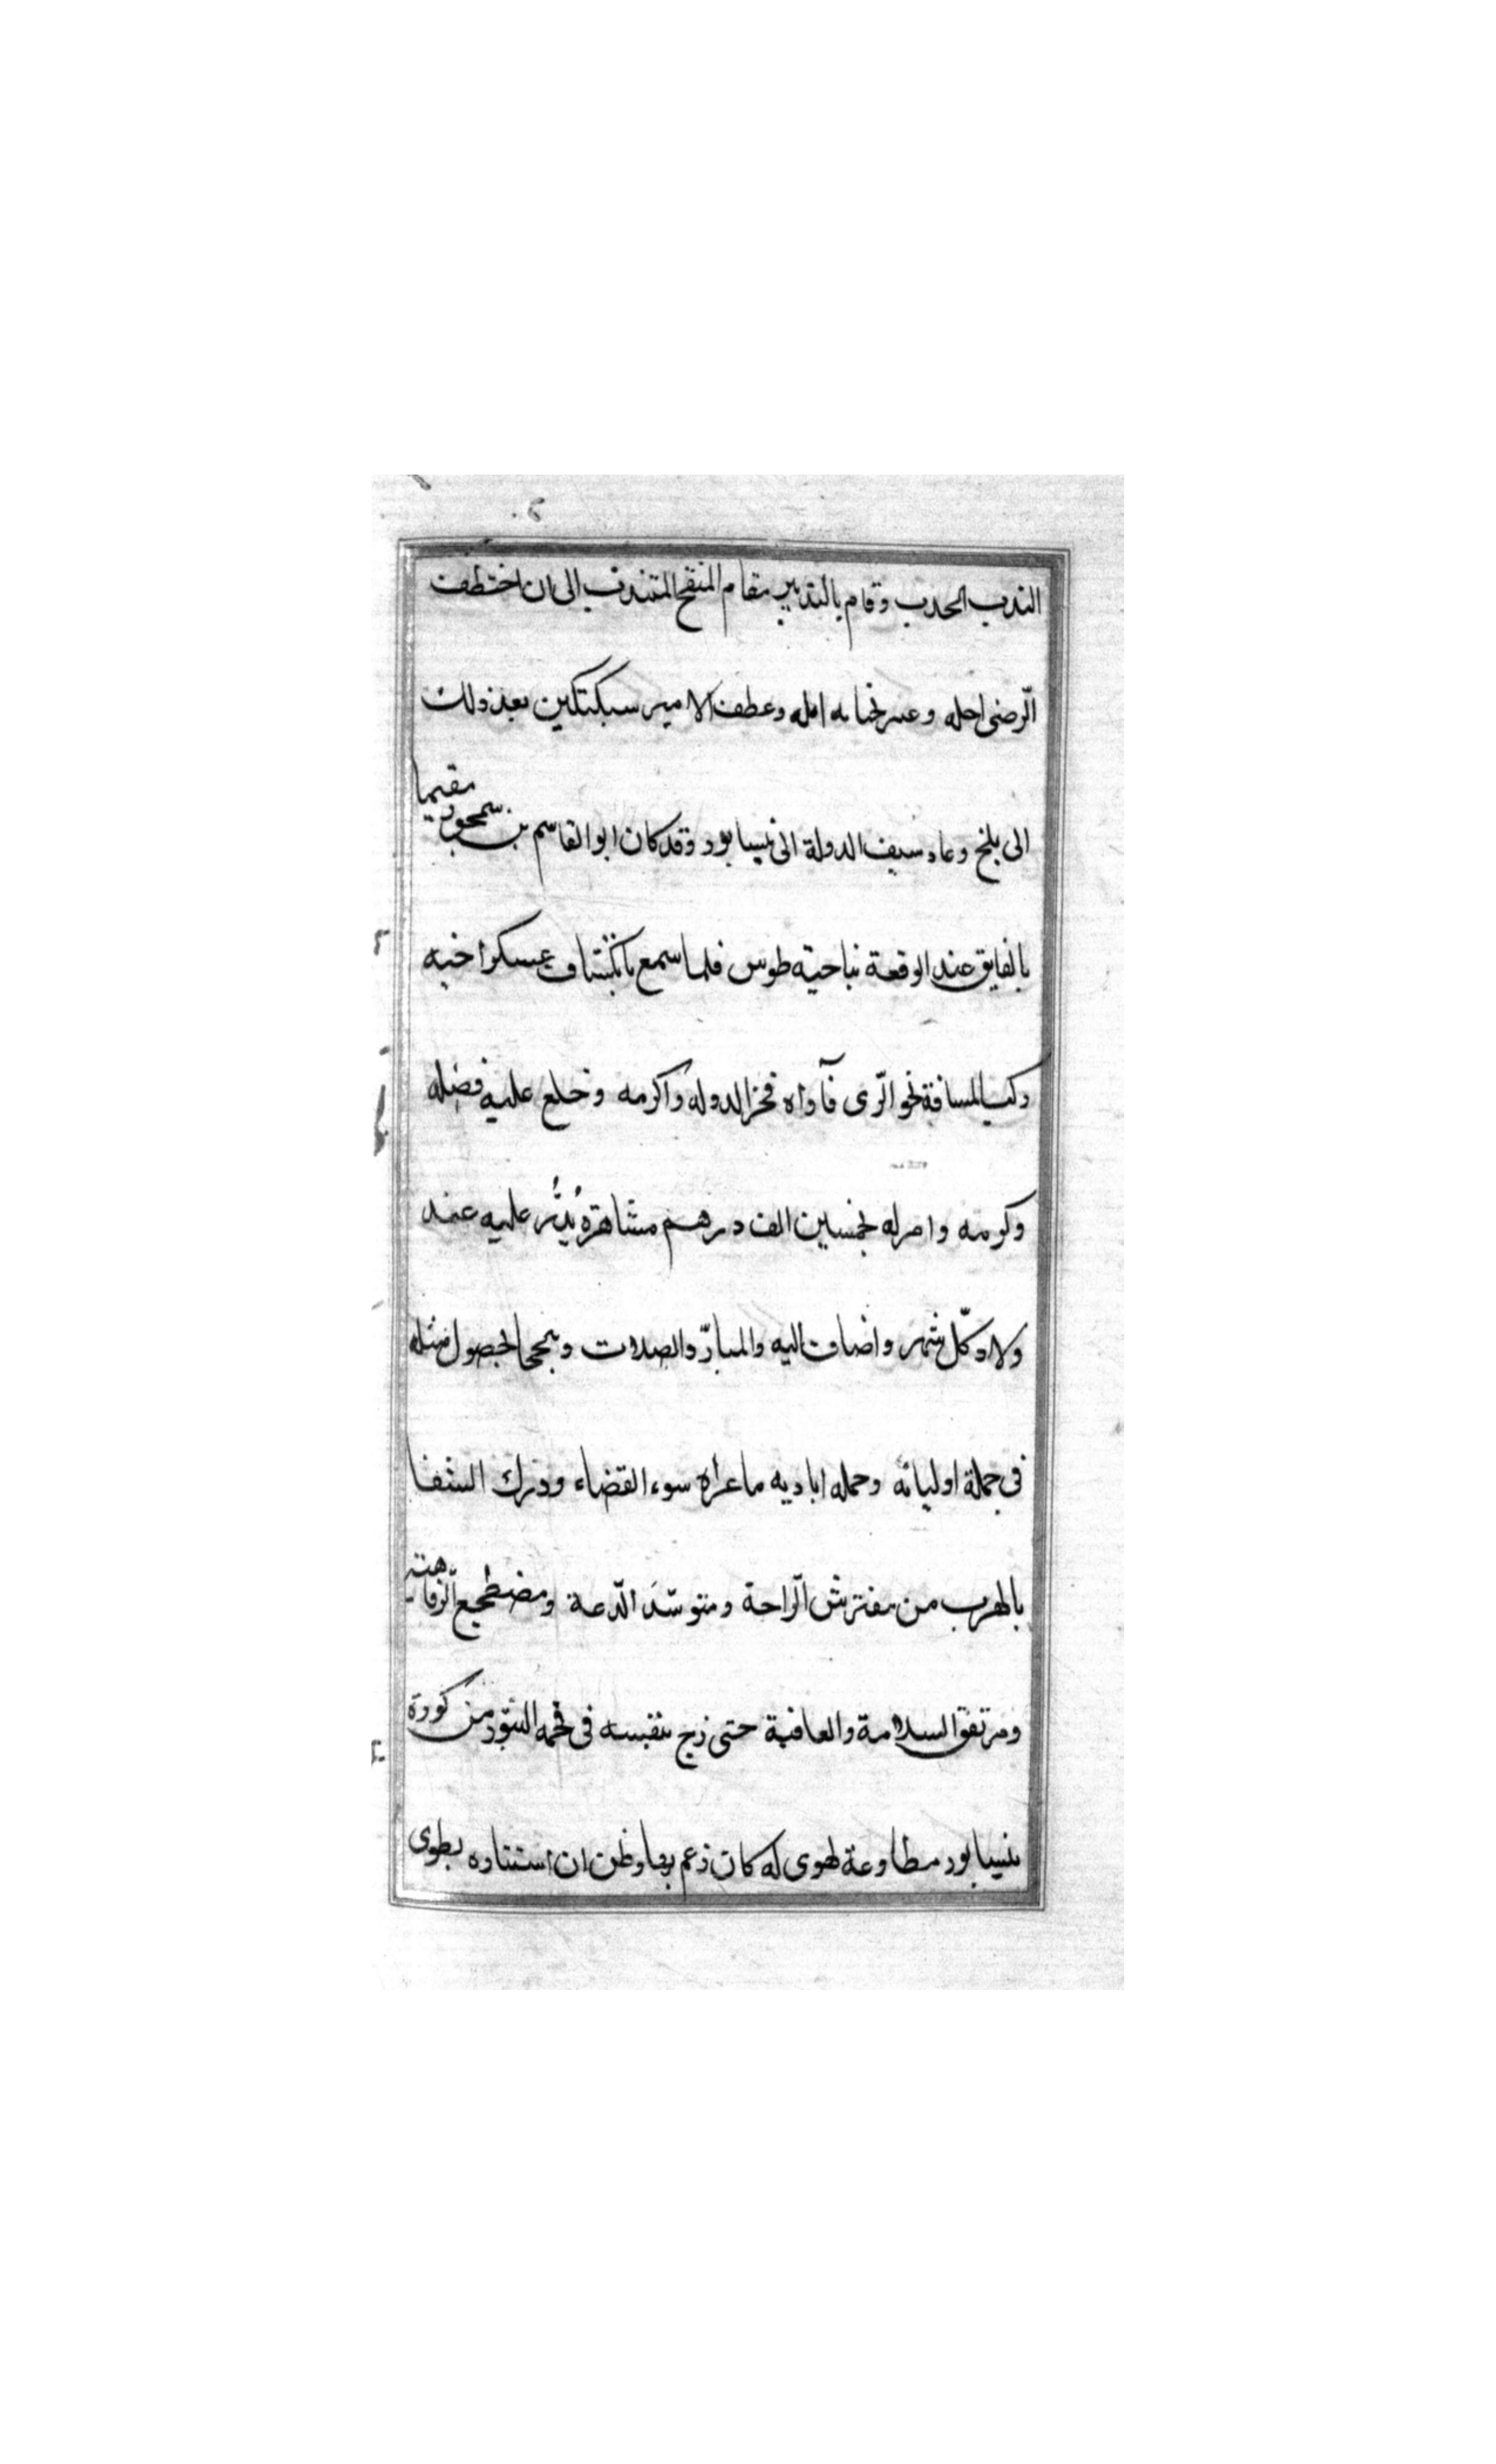 الندب الحدب وقام بالتدبير مقام المنقح المتندب الى ان اختطف
الرّضى اجله وعسر نجابه امله وعطف الامير سبكتكين بعد ذلك
الى بلخ وعاد سيف الدولة الى نيسابور وقد كان ابو القاسم بن سمجور مقيما
بالفايق عند الوقعة بناحية طوس فلما سمع بانكشاف عسكر اخيه
ركب المسافة نحو الرّى فآواه فخر الدوله واكرمه وخلع عليه فضله
وكرمه وامر له بخمسين الف درهم مشاهرة يُدَرُّ عليه عند
ولاد كلّ شهر واضاف اليه والمبارّ والصلات وبجحا لحصول مثله
فى جملة اوليائه وحمله اياديه ما عراه سوء القضاء ودرك الشقا
بالهرب من مفترش الرّاحة ومتوسّد الدّعة ومضطجع الرّفاهية
ومرتفق السلامة والعافية حتى زج بنفسه فى فحمه من كورة
نيسابور مطاوعة لهوى له كان زعم بها وظن ان استتاره يطوى